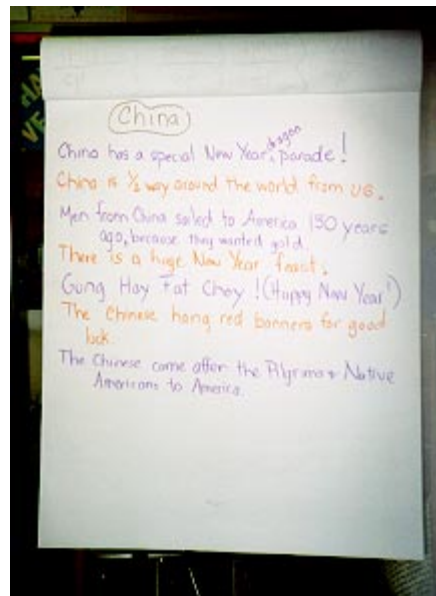 China
China has a special New Year, dragon parade!
China is ½ way around the world from us.
Men from China sailed to America 150 years
ago, because they wanted gold.
There is a huge New Year feast.
Gung Hay Fat Choy! (Happy New Year!)
The Chinese hang red banners for good
luck.
The Chinese came after the Pilgrims + Native
Americans to America.